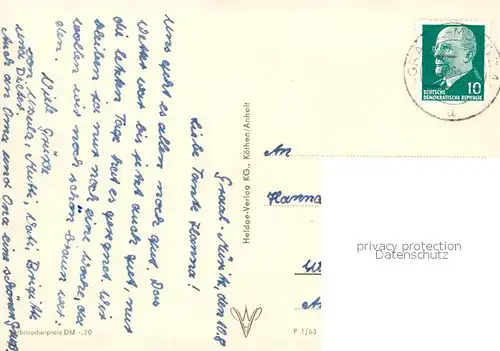 Graal-Müritz, den 10.8
Liebe Tante Hanna!
Uns geht es allen noch gut. Das
Wetter war bis jetzt auch gut, nur
die letzten Tage hat es geregnet. Wir
bleiben ja nur noch eine Woche, da
wollen wir noch schön braun wer-
den.
Viele Grüße
von Ursula, Mutti, Vati, Brigitte
und Dieter.
Auch an Oma und Opa einen schönen Gruß.
Verbraucherpreis DM -,20
Heldge-Verlag KG., Köthen/Anhalt
P 1/63
DEUTSCHE
DEMOKRATISCHE REPUBLIK
10
a
An
Hanna
privacy protection
Datenschutz